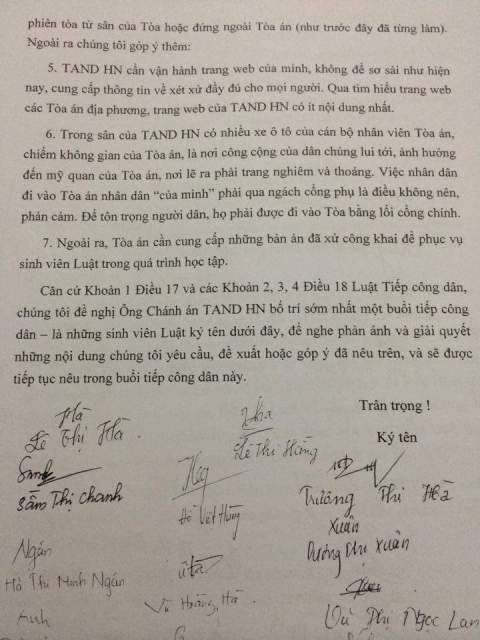 phiên tòa từ sân của Tòa hoặc đứng ngoài Tòa án (như trước đây đã từng làm).
Ngoài ra chúng tôi góp ý thêm:
5. TAND HN cần vận hành trang web của mình, không để sơ sài như hiện
nay, cung cấp thông tin về xét xử đầy đủ cho mọi người. Qua tìm hiểu trang web
các Tòa án địa phương, trang web của TAND HN có ít nội dung nhất.
6. Trong sân của TAND HN có nhiều xe ô tô của cán bộ nhân viên Tòa án,
chiếm không gian của Tòa án, là nơi công cộng của dân chúng lui tới, ảnh hưởng
đến mỹ quan của Tòa án, nơi lẽ ra phải trang nghiêm và thoáng. Việc nhân dân
đi vào Tòa án nhân dân “của mình” phải qua ngách cổng phụ là điều không nên,
phản cảm. Để tôn trọng người dân, họ phải được đi vào Tòa bằng lối cổng chính.
7. Ngoài ra, Tòa án cần cung cấp những bản án đã xử công khai để phục vụ
sinh viên Luật trong quá trình học tập.
Căn cứ Khoản 1 Điều 17 và các Khoản 2, 3, 4 Điều 18 Luật Tiếp công dân,
chúng tôi đề nghị Ông Chánh án TAND HN bố trí sớm nhất một buổi tiếp công
dân – là những sinh viên Luật ký tên dưới đây, để nghe phản ánh và giải quyết
những nội dung chúng tôi yêu cầu, đề xuất hoặc góp ý đã nêu trên, và sẽ được
tiếp tục nêu trong buổi tiếp công dân này.
Trân trọng !
Ký tên
Hà
Lê Thị Hà
Lê Thị Hằng
Sầm Thị Chanh
Đỗ Việt Hùng
Trương Thị Hà
Xuân
Dương Thị Xuân
Ngân
Hồ Thị Minh Ngân
Vũ Hoàng Hà
Vũ Thị Ngọc Lan
Anh